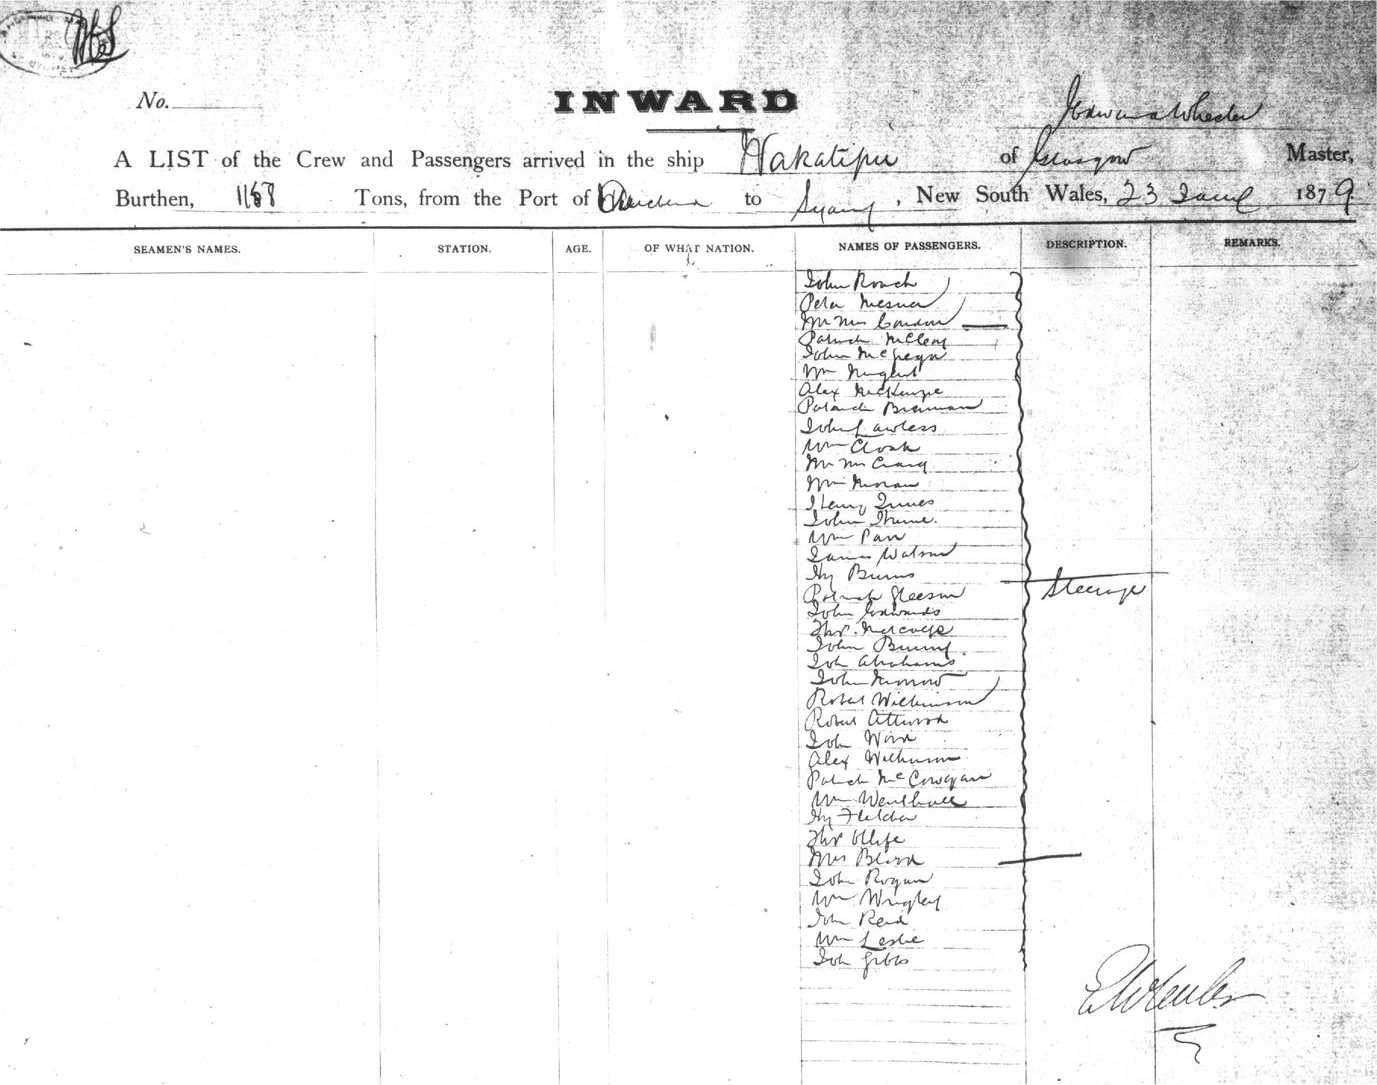 No.
INWARD
Edward Wheeler
A LIST of the Crew and Passengers arrived in the ship Wakatipu of Glasgow Master,
Burthen, 1158 Tons, from the Port of to Sydney, New South Wales, 23 1879
SEAMEN'S NAMES. STATION. AGE. OF WHAT NATION. NAMES OF PASSENGERS. DESCRIPTION. REMARKS.
John Roach
Peter
Mr Mrs Condon
Patrick McCleary
John McGregor
Wm Nugent
Alex McKenzie
Patrick Brennan
John Lawless
Wm Cloak
Mr Mrs Craig
Wm Moran
Henry Innes
John Hume
Wm Parr
James Watson
Hy Burns
Patrick Gleeson
Steerage
John Edwards
Thos. Metcalfe
John
Joh Abrahams
John Morrow
Robert Wilkinson
Robert Attwood
Joh Ward
Alex Wilkinson
Patrick McCowgan
Wm Wenthall
Hy Fletcher
Thos Ollife
Mrs Bland
John Rogan
Wm Wrigley
John Reid
Wm Leslie
Joh Gibbs
E Wheeler